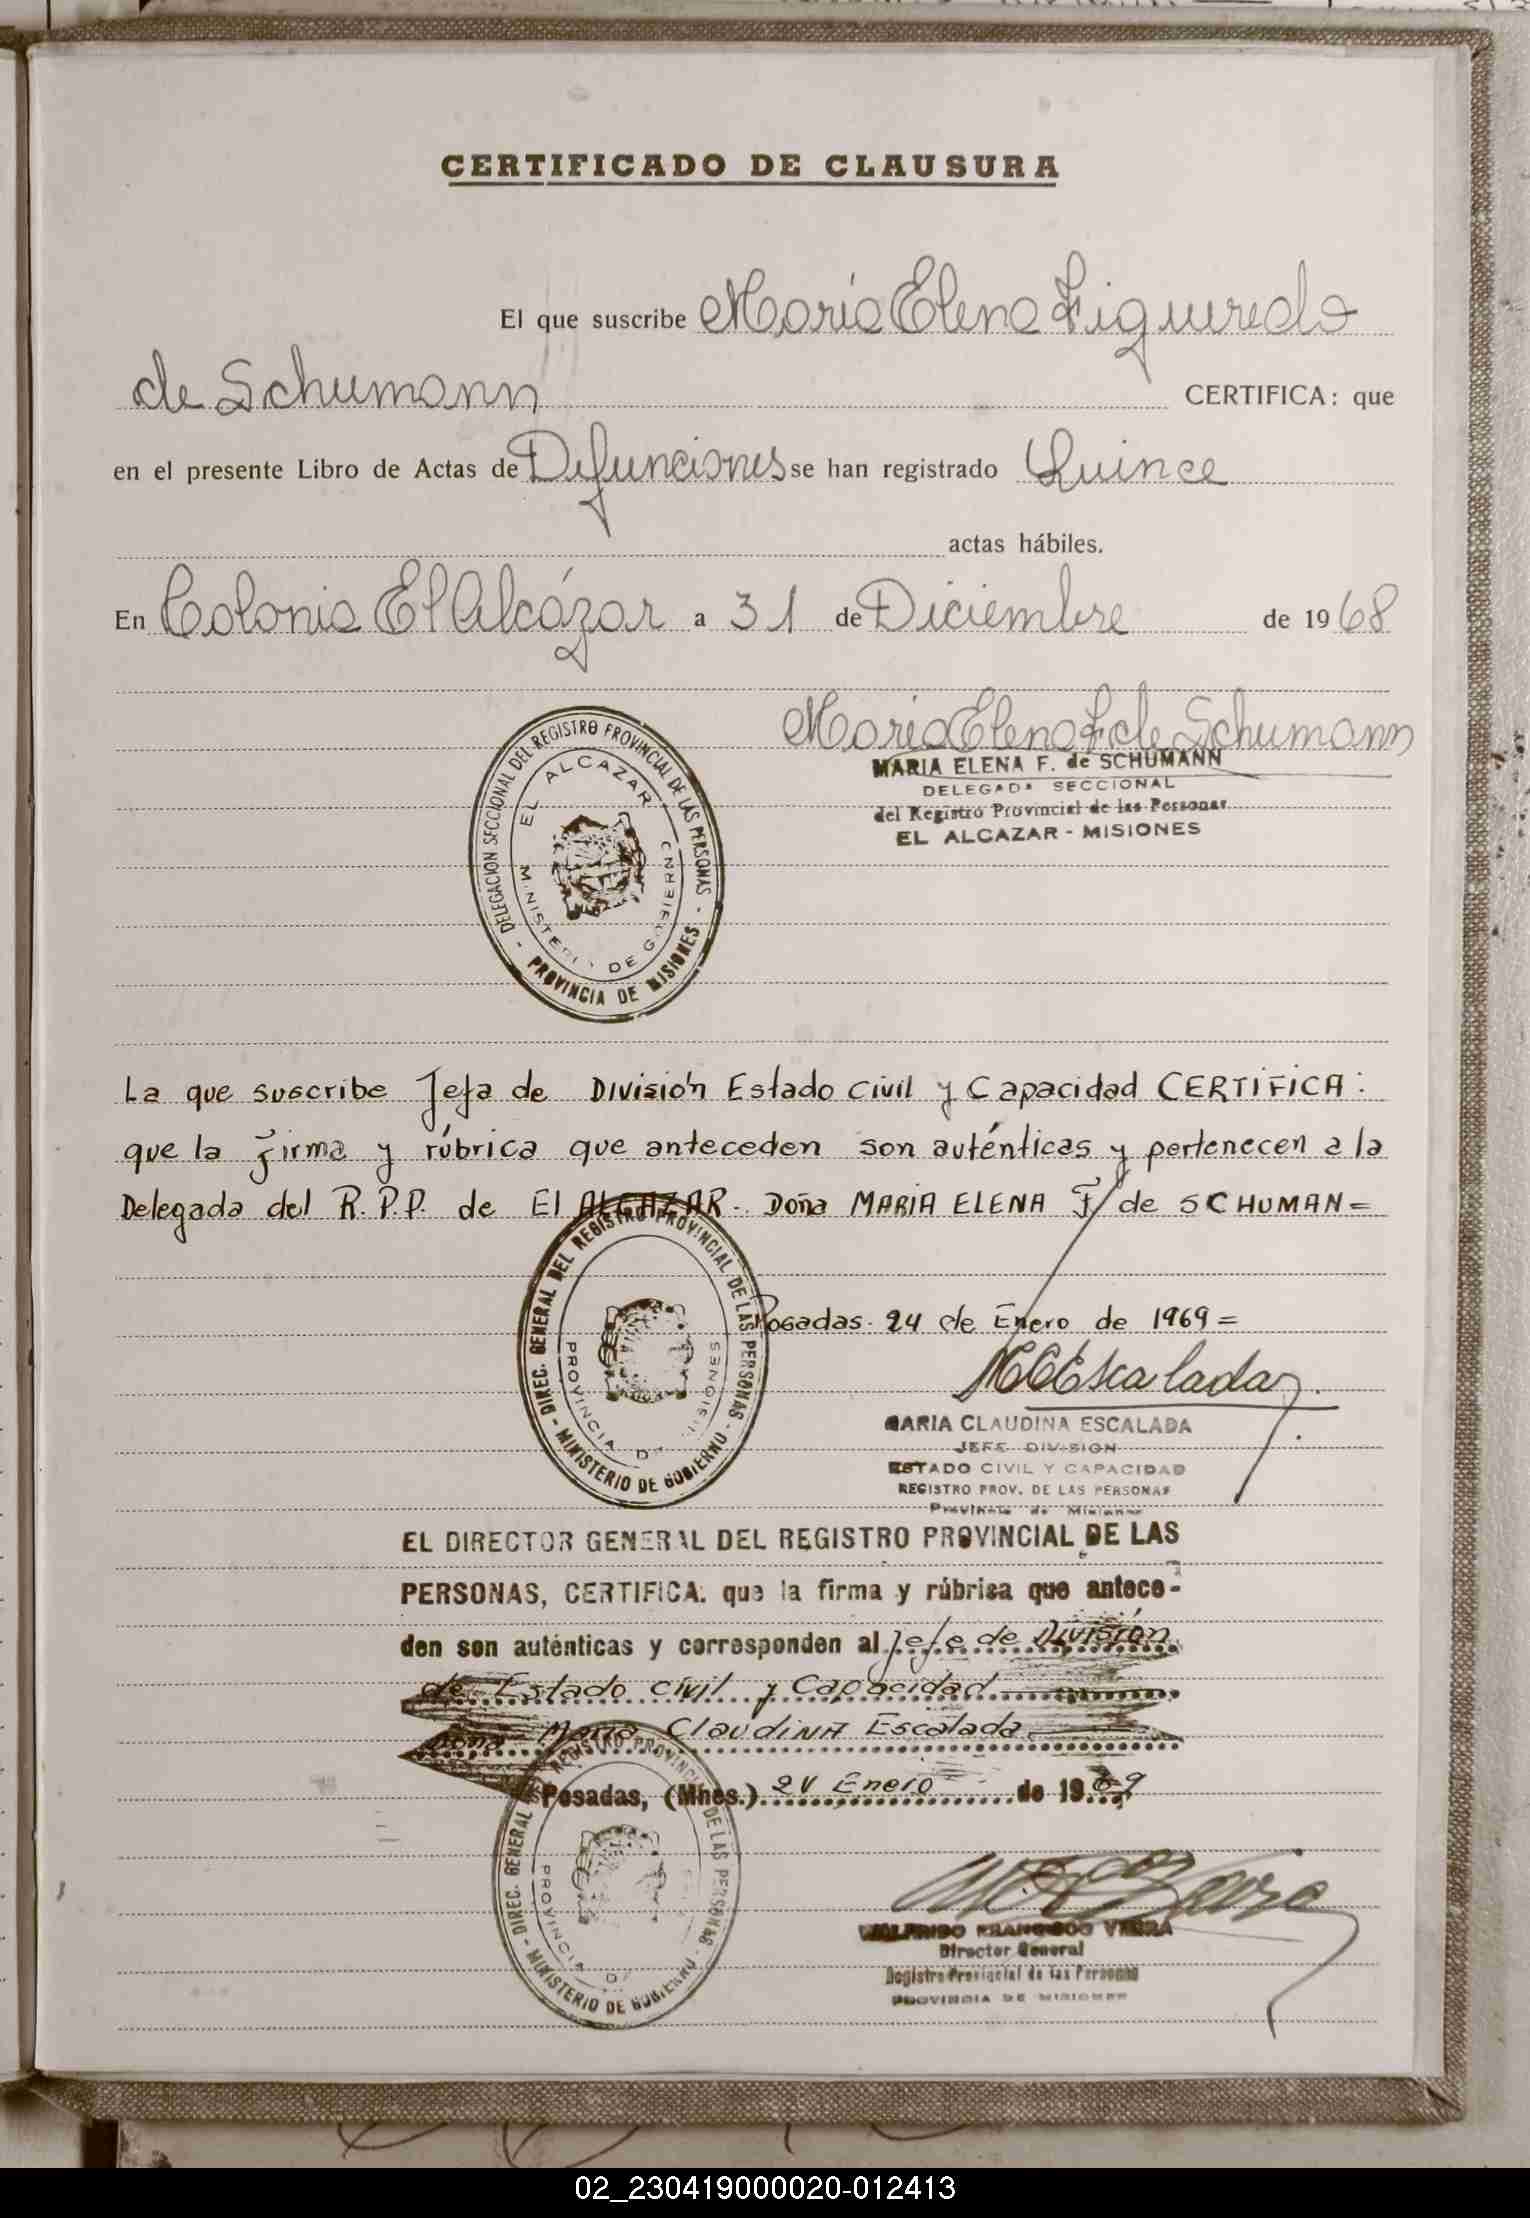 CERTIFICADO DE CLAUSURA
El que suscribe María Elena Figueredo
de Schumann CERTIFICA: que
en el presente Libro de Actas de Difunciones se han registrado Quince
actas hábiles.
En Colonia El Alcázar a 31 de Diciembre de 1968
María Elena F. de Schumann
MARIA ELENA F. de SCHUMANN
DELEGADA SECCIONAL
del Registro Provincial de las Personas
EL ALCAZAR - MISIONES
DELEGACION SECCIONAL DEL REGISTRO PROVINCIAL DE LAS PERSONAS - PROVINCIA DE MISIONES -
EL ALCAZAR
MINISTERIO DE GOBIERNO
La que suscribe Jefa de División Estado Civil y Capacidad CERTIFICA:
que la firma y rúbrica que anteceden son auténticas y pertenecen a la
Delegada del R.P.P. de El ALCAZAR - Doña MARIA ELENA F de SCHUMAN=
DIREC. GENERAL DEL REGISTRO PROVINCIAL DE LAS PERSONAS - MINISTERIO DE GOBIERNO -
PROVINCIA DE MISIONES
Posadas. 24 de Enero de 1969=
MCEscalada
MARIA CLAUDINA ESCALADA
JEFE DIVISION
ESTADO CIVIL Y CAPACIDAD
REGISTRO PROV. DE LAS PERSONAS
Provincia de Misiones
EL DIRECTOR GENERAL DEL REGISTRO PROVINCIAL DE LAS
PERSONAS, CERTIFICA: que la firma y rúbrisa que antece-
den son auténticas y corresponden al Jefe de División
de Estado civil y Capacidad
Doña María Claudina Escalada
Posadas, (Mnes.) 24 Enero de 1969
DIREC. GENERAL DEL REGISTRO PROVINCIAL DE LAS PERSONAS - MINISTERIO DE GOBIERNO -
PROVINCIA
WOLFRIDO FRANCISCO VIERA
Director General
Registro Provincial de las Personas
PROVINCIA DE MISIONES
02_230419000020-012413